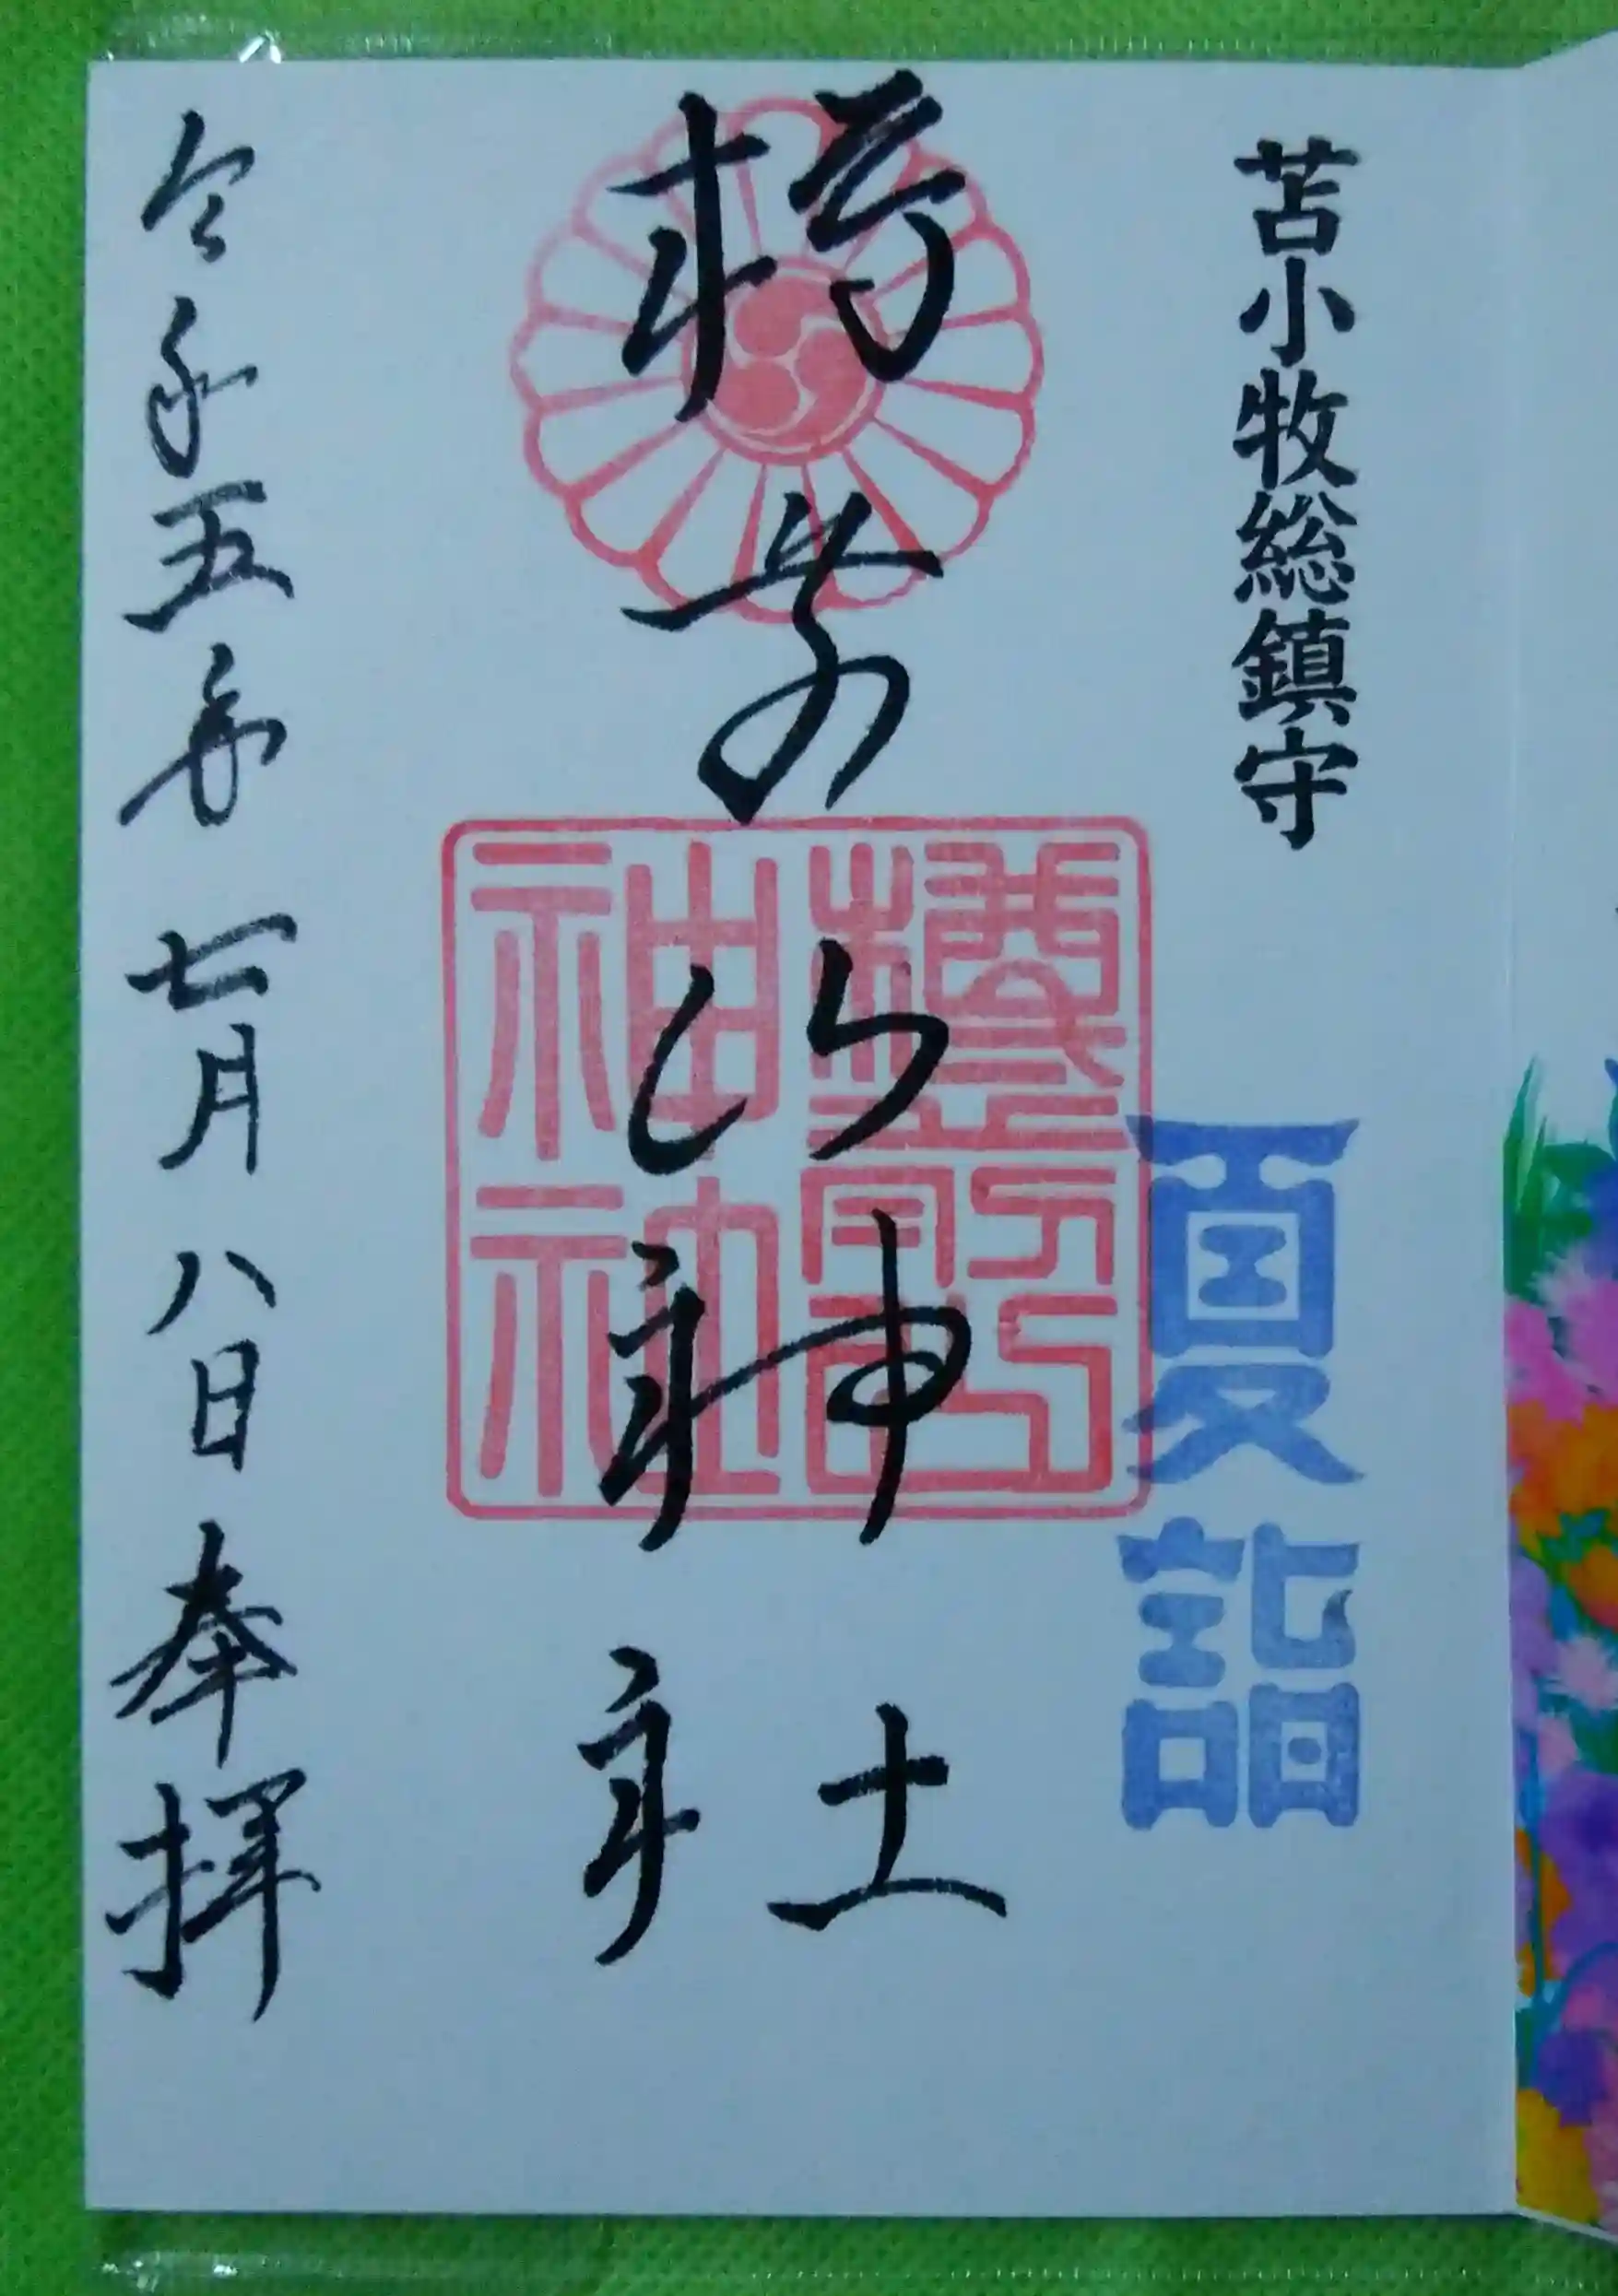 苫小牧総鎮守
夏詣
樽前山神社
樽前山神社
令和五年七月八日奉拝